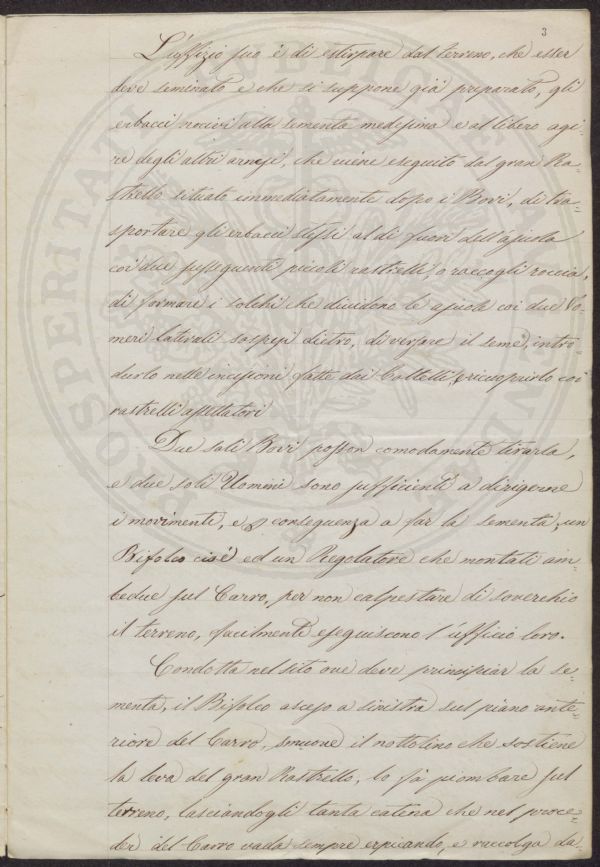 3
L'uffizio suo è di estirpare dal terreno, che esser
deve seminato e che si suppone già preparato, gli
erbacci nocivi alla sementa medesima e al libero agi-
re degli altri arnesi, che viene eseguito dal gran Ra-
strello situato immediatamente dopo i Bovi, di tra-
sportare gli erbacci stessi al di fuori dell'ajuola
coi due susseguenti piccoli rastrelli, o raccogli roccia,
di formare i solchi che dividono le ajuole coi due Vo-
meri laterali sospesi dietro, di versare il seme, intro-
durlo nelle incisioni fatte dai Coltelli, e ricuoprirlo coi
rastrelli assettatori
Due soli Bovi posson comodamente tirarla,
e due soli Uomini sono sufficienti a dirigerne
i movimenti, e conseguenza a far la sementa, un
Bifolco cioè ed un Regolatore che montati am-
bedue sul Carro, per non calpestare di soverchio
il terreno, facilmente eseguiscono l'ufficio loro.
Condotta nel sito ove deve principiar la se-
menta, il Bifolco asceso a sinistra sul piano ante-
riore del Carro, smuove il nottolino che sostiene
la leva del gran Rastrello, lo fà piombare sul
terreno, lasciandogli tanta catena che nel proce-
der del Carro vada sempre erpicando, e raccolga da-
PROSPERITATI PUBLICAE